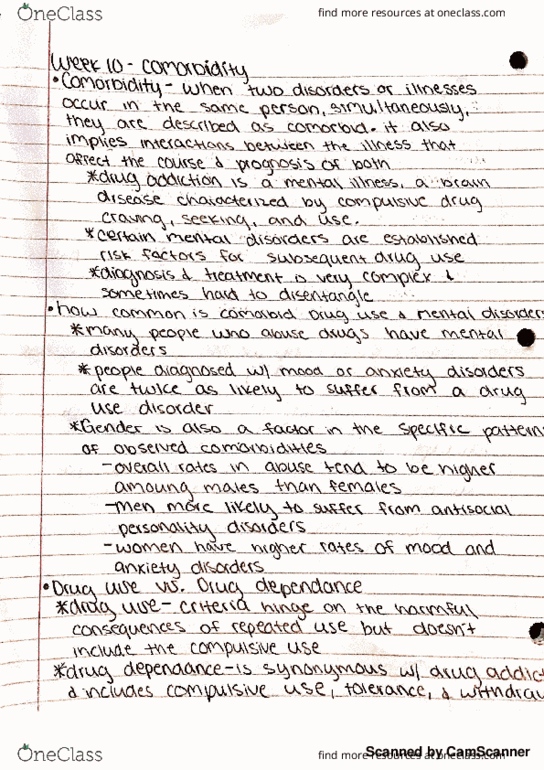 OneClass
find more resources at oneclass.com
Week 10 - Comorbidity
• Comorbidity - when two disorders or illnesses
occur in the same person, simultaneously,
they are described as comorbid. it also
implies interactions between the illness that
affect the course & prognosis of both
*drug addiction is a mental illness, a brain
disease characterized by compulsive drug
craving, seeking, and use.
*certain mental disorders are established
risk factors for subsequent drug use
*diagnosis & treatment is very complex &
sometimes hard to disentangle
• how common is comorbid Drug use & mental disorders
*many people who abuse drugs have mental
disorders
*people diagnosed w/ mood or anxiety disorders
are twice as likely to suffer from a drug
use disorder
*Gender is also a factor in the specific pattern
of observed comorbidities
-overall rates in abuse tend to be higher
amoung males than females
-men more likely to suffer from antisocial
personality disorders
-women have higher rates of mood and
anxiety disorders
• Drug use vs. Drug dependance
*drug use - criteria hinge on the harmful
consequences of repeated use but doesn't
include the compulsive use
*drug dependance - is synonymous w/ drug addict
& includes compulsive use, tolerance, & withdraw
OneClass
find more resources at oneclass.com
Scanned by CamScanner